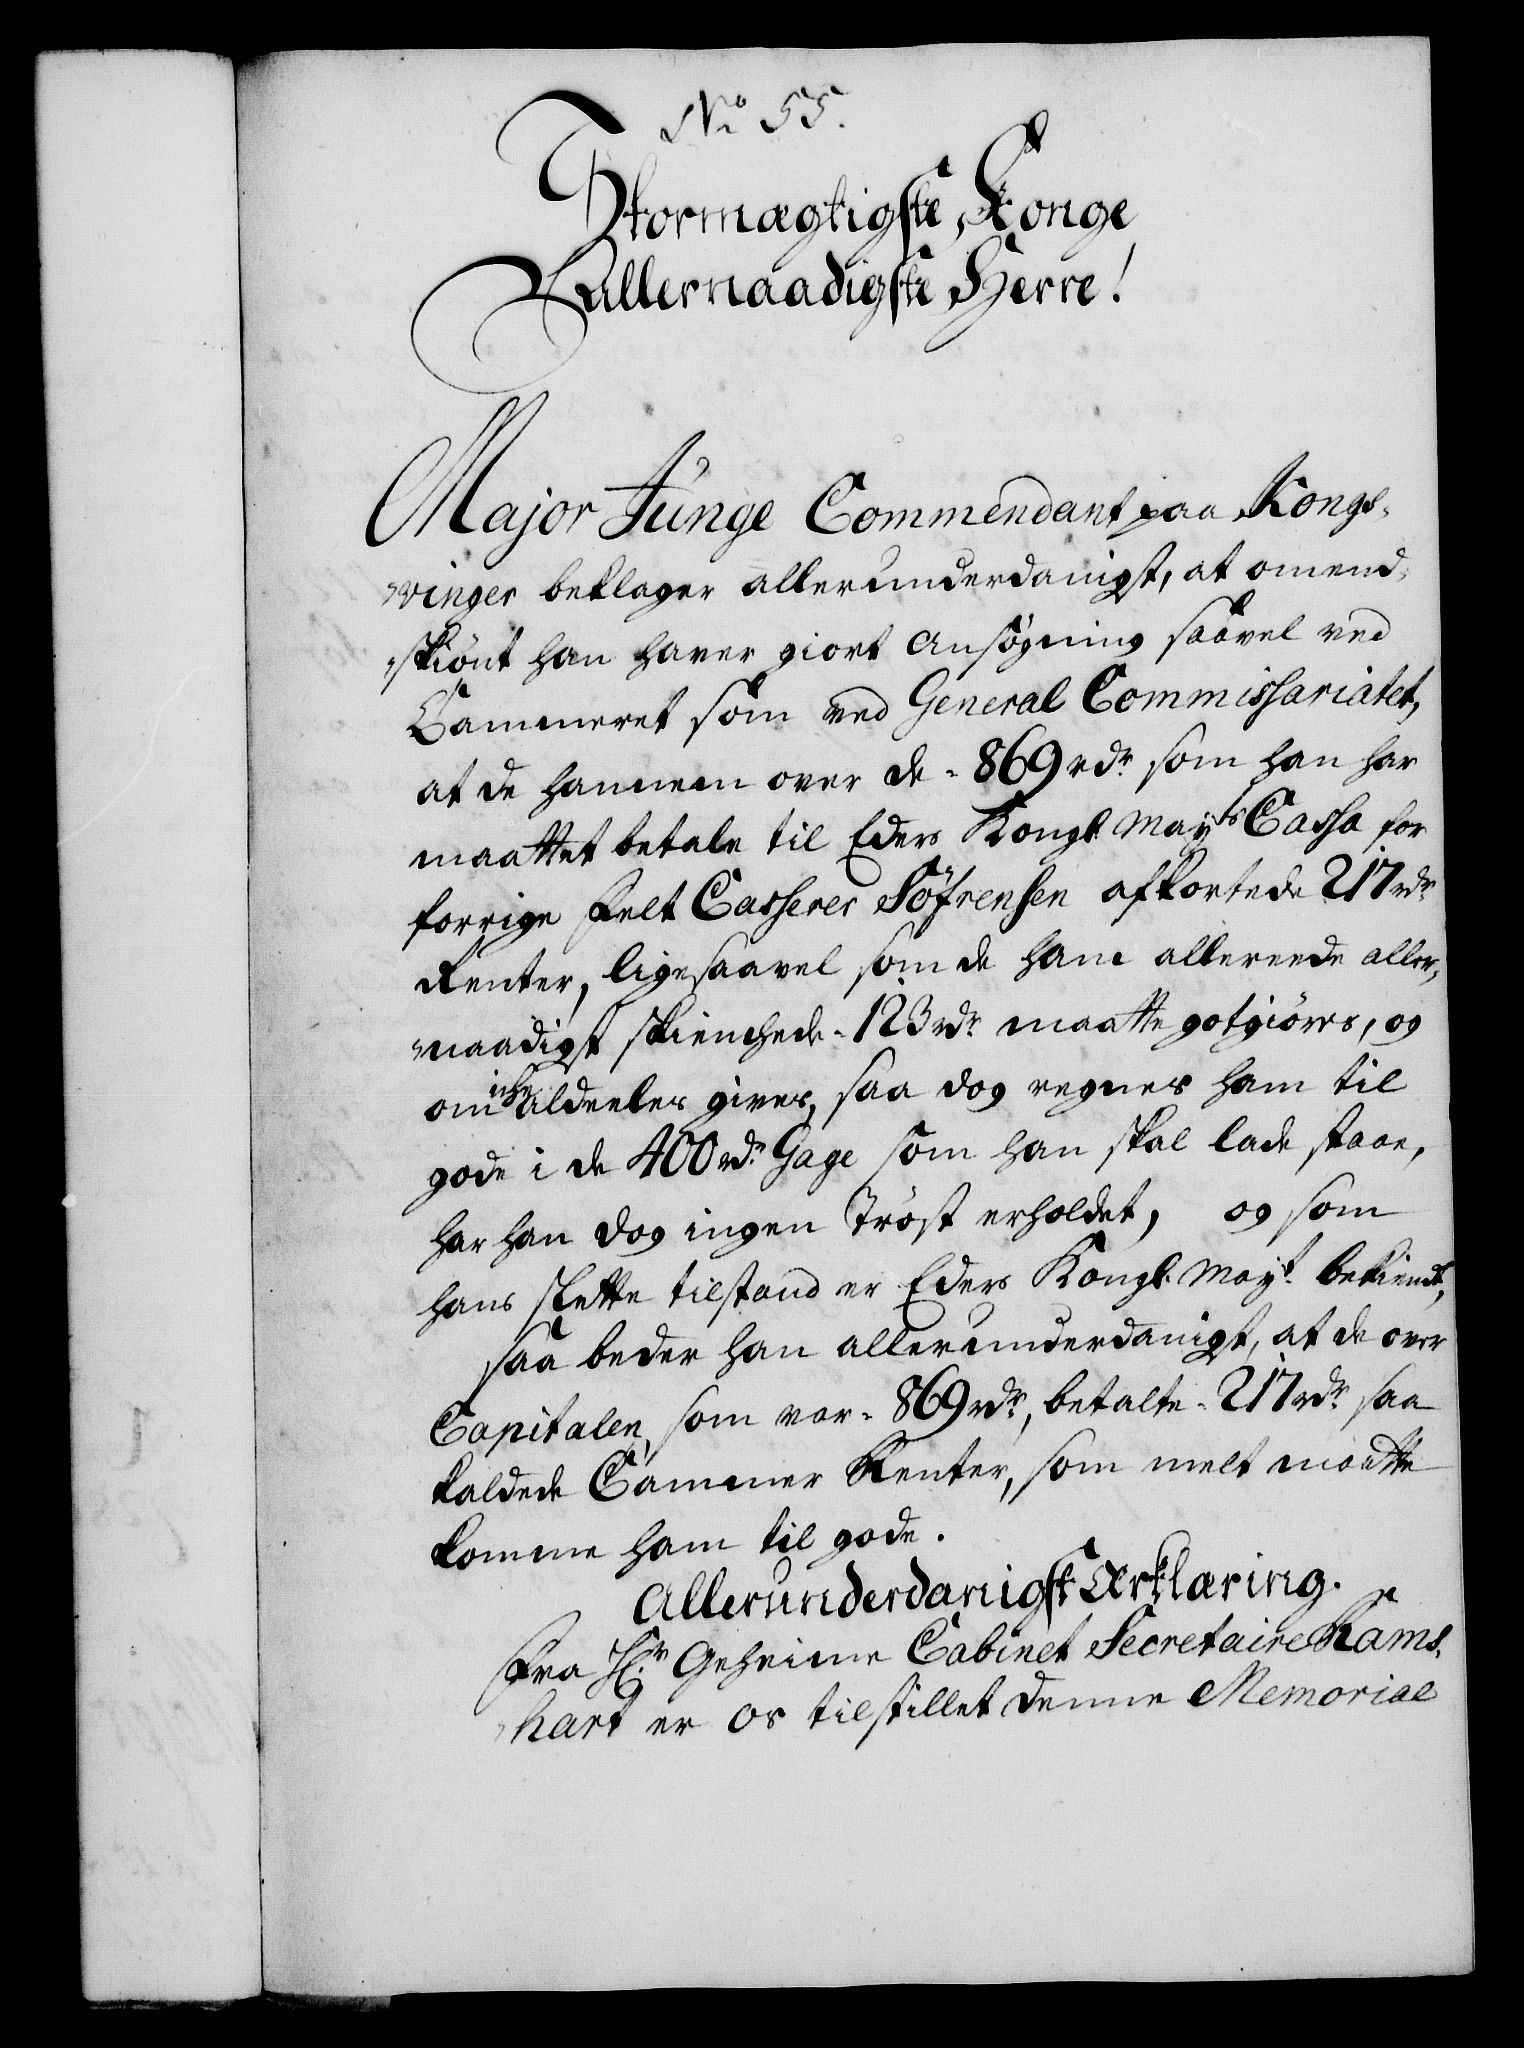 No 55.
Stormægtigste Konge
Allernaadigste Herre!
Major Junge Commendant paa Kongs-
vinger beklager allerunderdanigst, at omend-
skiönt han haver giort Ansögning saavel ved
Cammeret som ved General Commissariatet,
at de hannem over de - 869 rdr som han har
maattet betale til Eders Kongl. Mayts Cassa for
forrige Felt Casserer Söfrensen afkortede 217 rdr
Renter, ligesaavel som de ham allereede aller-
naadigst skienchede - 123 rdr maatte gotgiöres, og
om iche aldeeles gives, saa dog regnes ham til
gode i de 400 rdr Gage som han skal lade staae,
har han dog ingen Tröst erholdet, og som
hans slette tilstand er Eders Kongl. Mayt. bekiendt,
saa beder han allerunderdanigst, at de over
Capitalen, som var - 869 rdr, betalte - 217 rdr saa
kaldede Cammer Renter, som melt maatte
komme ham til gode.
Allerunderdanigst Erklæring.
Fra Hr Geheime Cabinet Secretaire Rams-
hart er os tilstillet denne Memorial